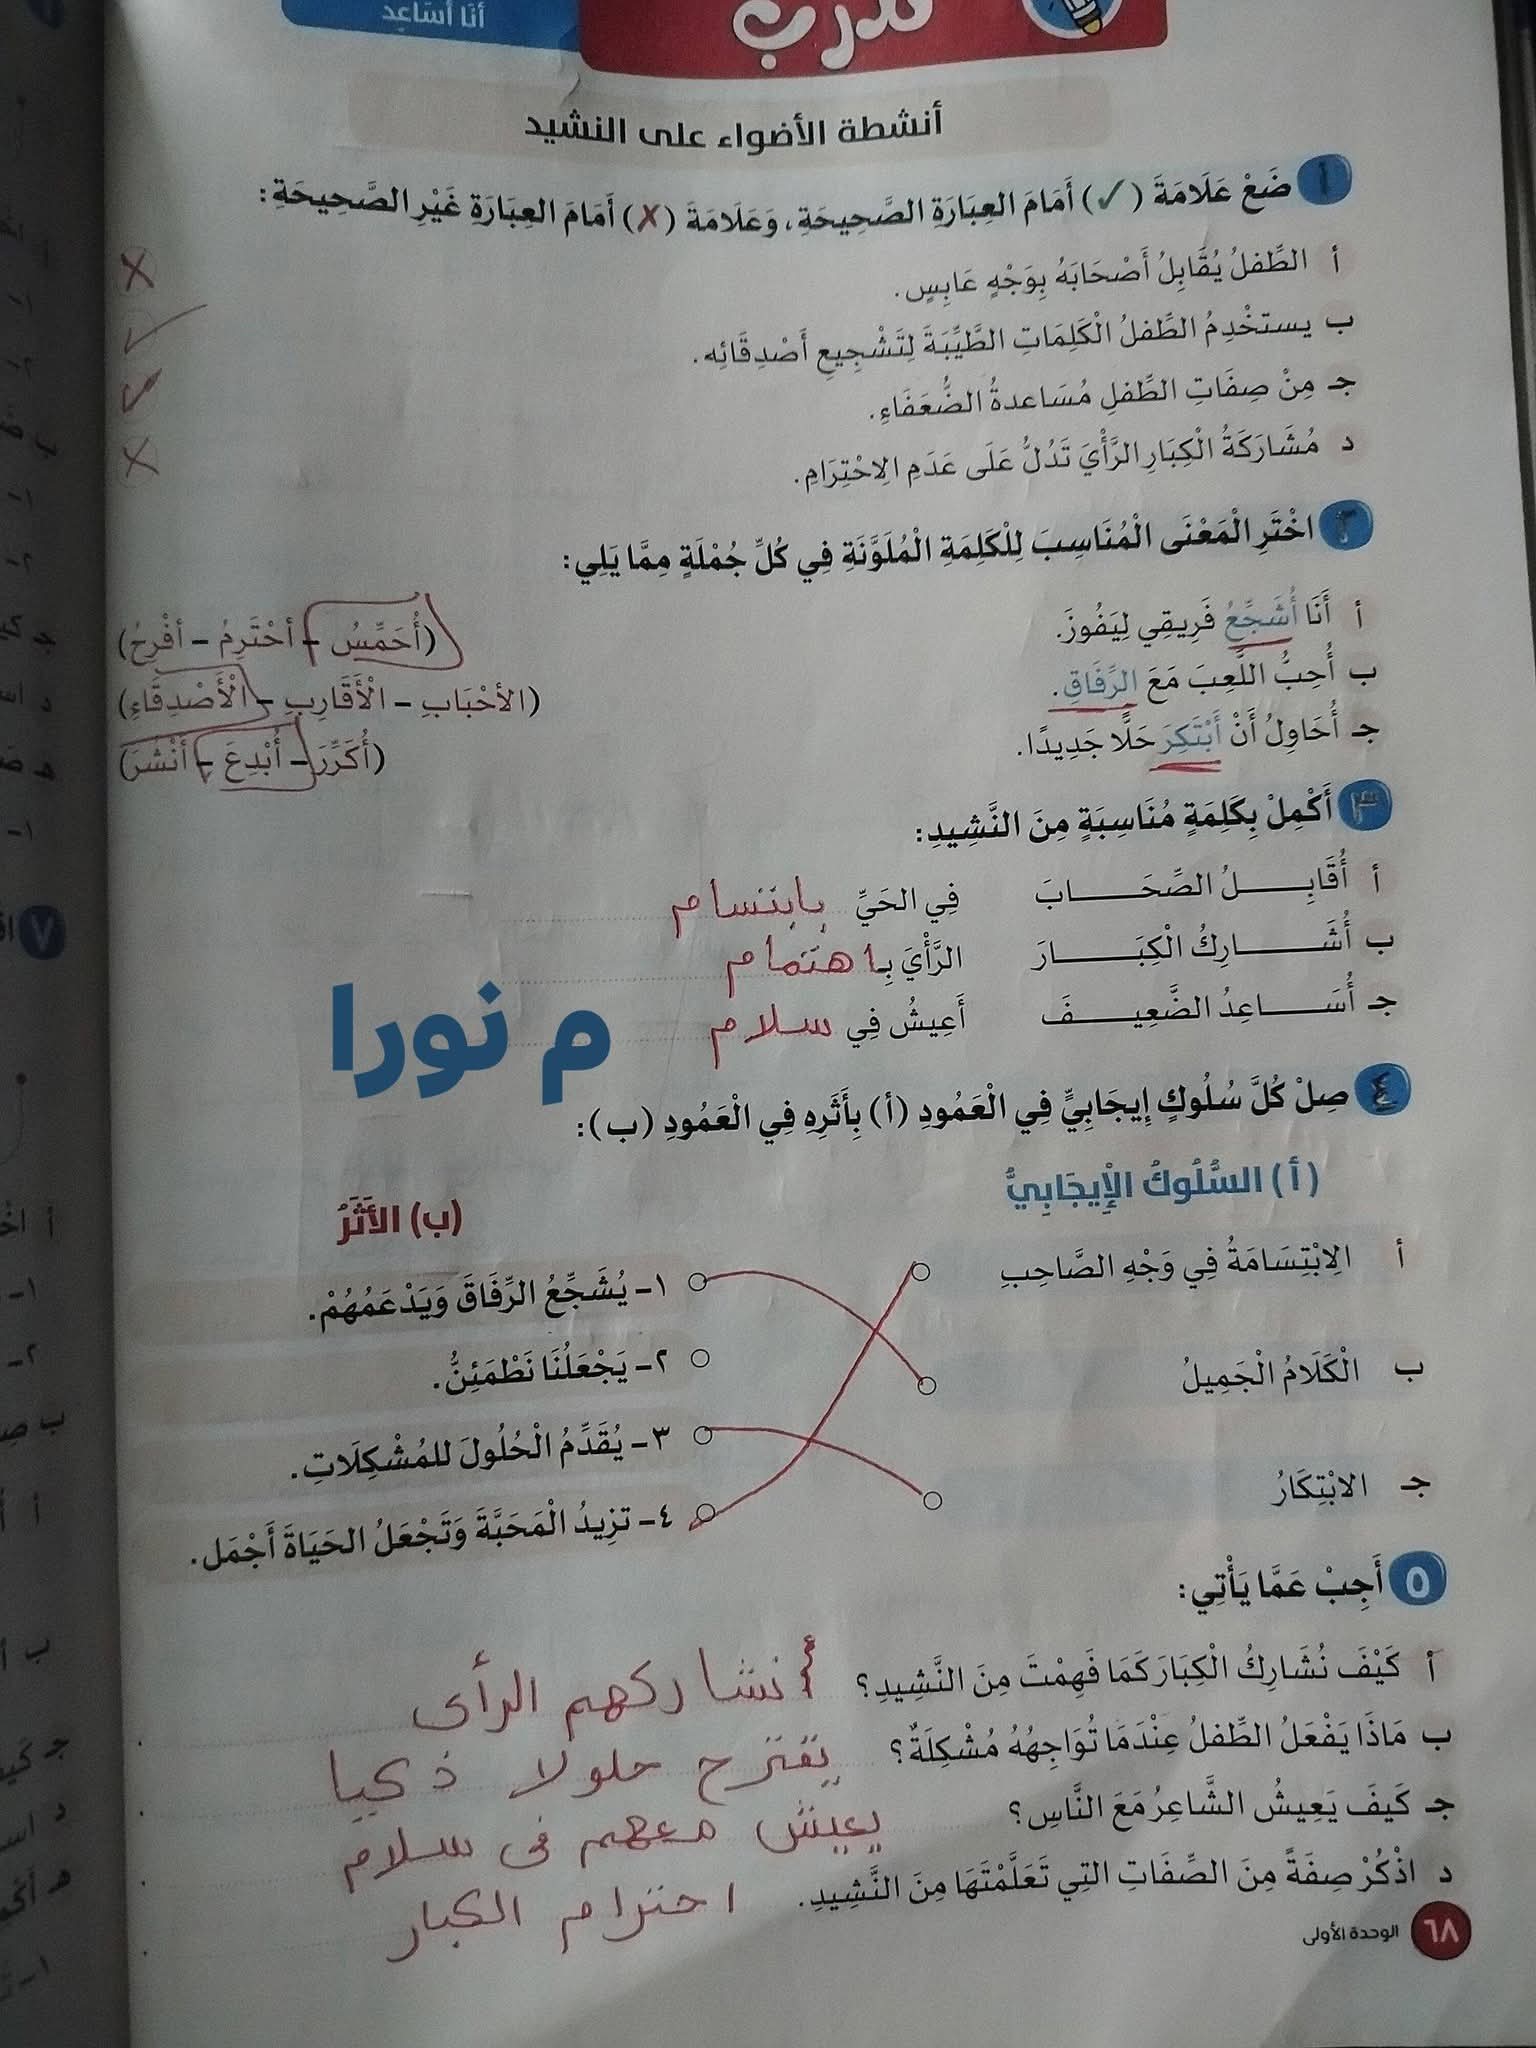 تدرب
أنا أساعد
أنشطة الأضواء على النشيد
١ ضَعْ عَلَامَةَ (✓) أَمَامَ العِبَارَةِ الصَّحِيحَةِ، وَعَلَامَةَ (✗) أَمَامَ العِبَارَةِ غَيْرِ الصَّحِيحَةِ:
أ الطِّفلُ يُقَابِلُ أَصْحَابَهُ بِوَجْهٍ عَابِسٍ. ✗
ب يستخْدِمُ الطِّفلُ الْكَلِمَاتِ الطَّيِّبَةَ لِتَشْجِيعِ أَصْدِقَائِه. ✓
جـ مِنْ صِفَاتِ الطِّفلِ مُسَاعدةُ الضُّعَفَاءِ. ✓
د مُشَارَكَةُ الْكِبَارِ الرَّأْيَ تَدُلُّ عَلَى عَدَمِ الِاحْتِرَامِ. ✗
٢ اخْتَرِ الْمَعْنَى الْمُنَاسِبَ لِلْكَلِمَةِ الْمُلَوَّنَةِ فِي كُلِّ جُمْلَةٍ مِمَّا يَلِي:
أ أَنَا أُشَجِّعُ فَرِيقِي لِيَفُوزَ. (أُحَمِّسُ - أحْتَرِمُ - أفْرِحُ)
ب أُحِبُّ اللَّعِبَ مَعَ الرِّفَاقِ. (الأحْبَابِ - الْأَقَارِبِ - الْأَصْدِقَاءِ)
جـ أُحَاوِلُ أَنْ أَبْتَكِرَ حَلًّا جَدِيدًا. (أُكَرِّرَ - أُبْدِعَ - أنْشُرَ)
٣ أَكْمِلْ بِكَلِمَةٍ مُنَاسِبَةٍ مِنَ النَّشِيدِ:
أ أُقَابِـلُ الصِّحَـابَ فِي الحَيِّ بابتسام
ب أُشَـارِكُ الْكِبَـارَ الرَّأْيَ بِـاهتمام
جـ أُسَـاعِدُ الضَّعِيـفَ أَعِيشُ فِي سلام
م نورا
٤ صِلْ كُلَّ سُلُوكٍ إِيجَابِيٍّ فِي الْعَمُودِ (أ) بِأَثَرِهِ فِي الْعَمُودِ (ب):
(أ) السُّلُوكُ الْإِيجَابِيُّ (ب) الأَثَرُ
أ الِابْتِسَامَةُ فِي وَجْهِ الصَّاحِبِ ١- يُشَجِّعُ الرِّفَاقَ وَيَدْعَمُهُمْ.
٢- يَجْعَلُنَا نَطْمَئِنُّ.
ب الْكَلَامُ الْجَمِيلُ ٣- يُقَدِّمُ الْحُلُولَ للمُشْكِلَاتِ.
جـ الابْتِكَارُ ٤- تزِيدُ الْمَحَبَّةَ وَتَجْعَلُ الحَيَاةَ أَجْمَل.
٥ أَجِبْ عَمَّا يَأْتِي:
أ كَيْفَ نُشَارِكُ الْكِبَارَ كَمَا فَهِمْتَ مِنَ النَّشِيدِ؟ أنشاركهم الرأى
ب مَاذَا يَفْعَلُ الطِّفلُ عِنْدَمَا تُوَاجِهُهُ مُشْكِلَةٌ؟ يقترح حلولا ذكيا
جـ كَيفَ يَعِيشُ الشَّاعِرُ مَعَ النَّاسِ؟ يعيش معهم فى سلام
د اذْكُرْ صِفَةً مِنَ الصِّفَاتِ التِي تَعَلَّمْتَهَا مِنَ النَّشِيدِ. احترام الكبار
٦٨ الوحدة الأولى